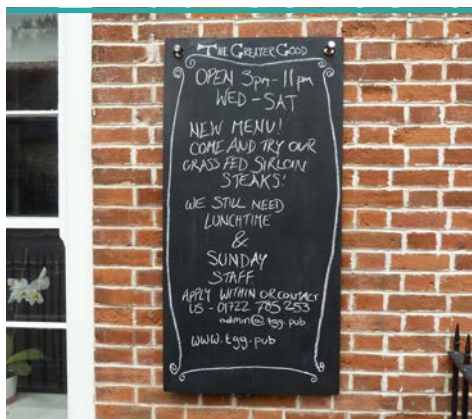 THE GREATER GOOD
OPEN 3pm-11pm
WED-SAT
NEW MENU!
COME AND TRY OUR
GRASS FED SIRLOIN
STEAKS!
WE STILL NEED
LUNCHTIME
&
SUNDAY
STAFF
APPLY WITHIN OR CONTACT
US - 01722 785 253
admin@tgg.pub
www.tgg.pub